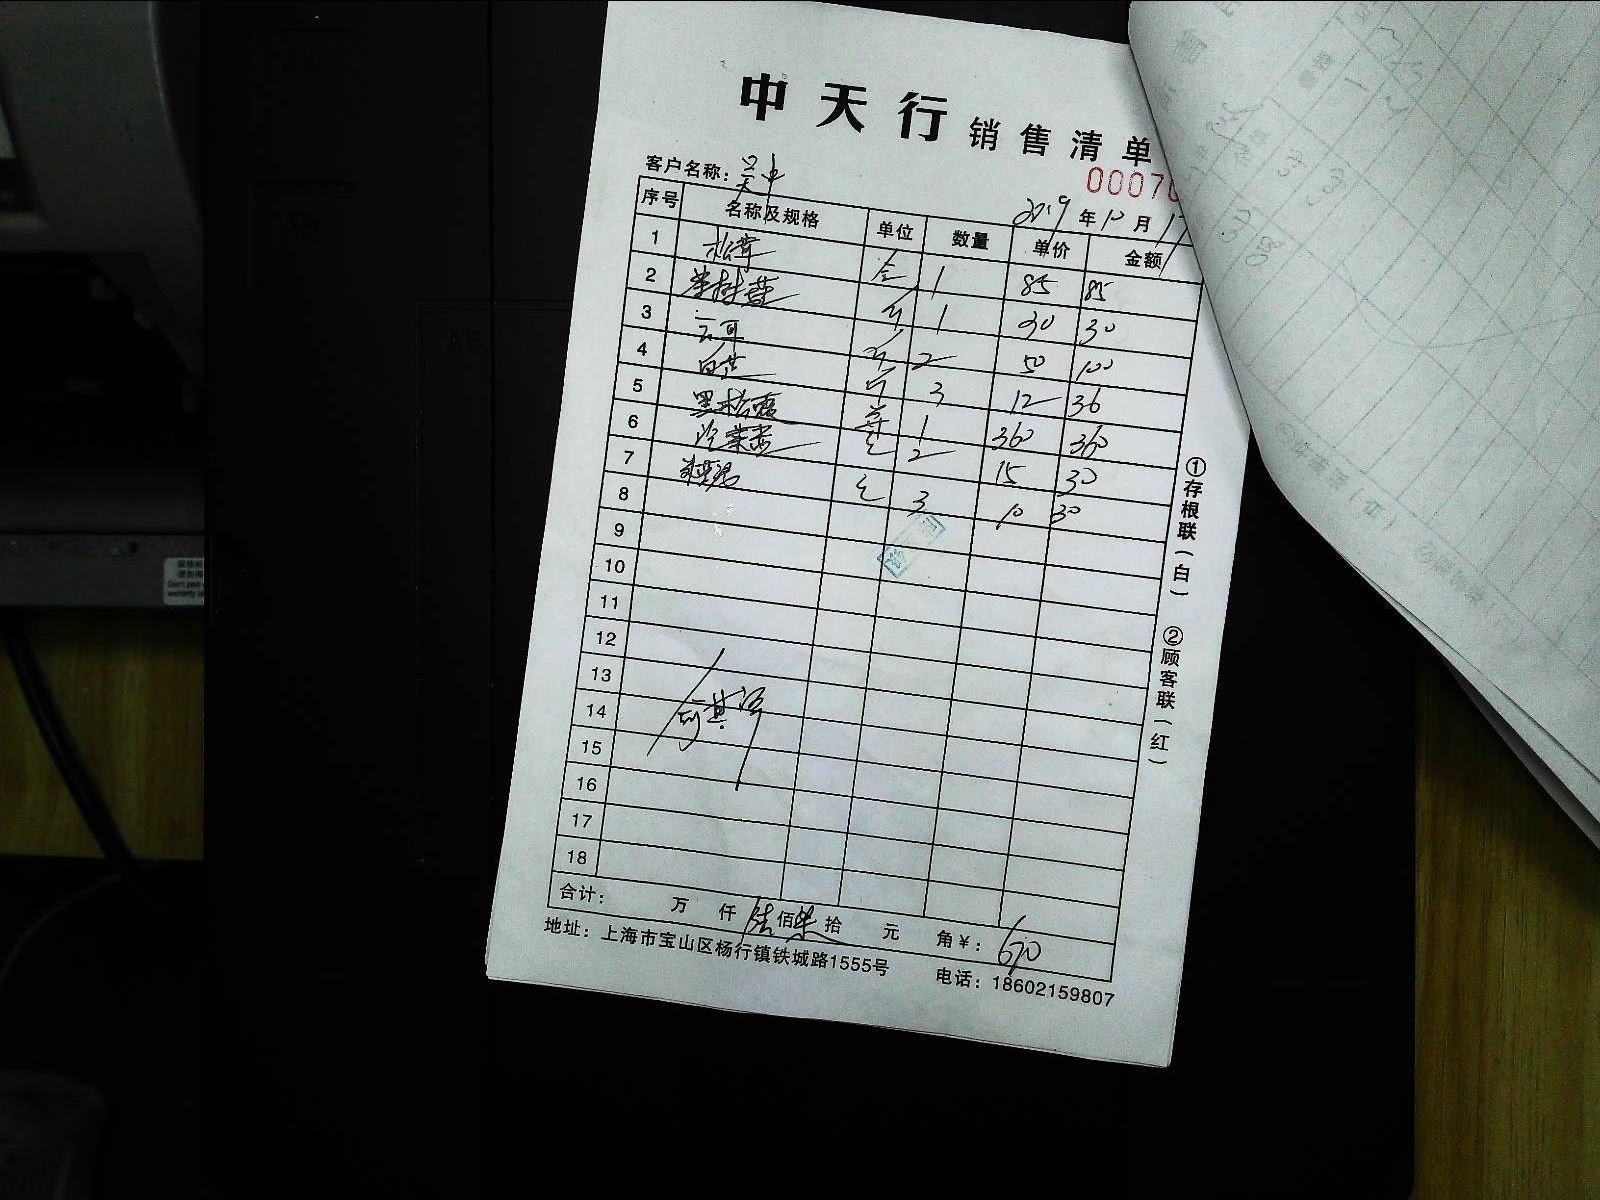 中天行 销售清单
0007
客户名称：吴中
2019 年 12 月 17
序号 名称及规格 单位 数量 单价 金额
1 松茸 1 85 85
2 茶树菇 斤 1 30 30
3 云耳 斤 2 50 100
4 白芷 斤 3 12 36
5 黑松露 1 360 360
6 2 15 30
7 包 3 10 30
8
9
10
11
12
13
14
15
16
17
18
合计： 万 仟 陆 佰 柒 拾 元 角 ¥： 670
地址：上海市宝山区杨行镇铁城路1555号 电话：18602159807
①存根联（白） ②顾客联（红）